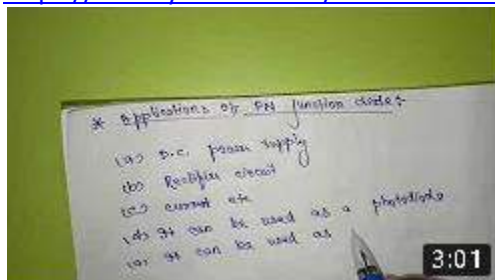 * Applications of PN junction diode :
(a) D.C. power supply
(b) Rectifier circuit
(c) current etc
(d) It can be used as a photodiode
(e) It can be used as
3:01